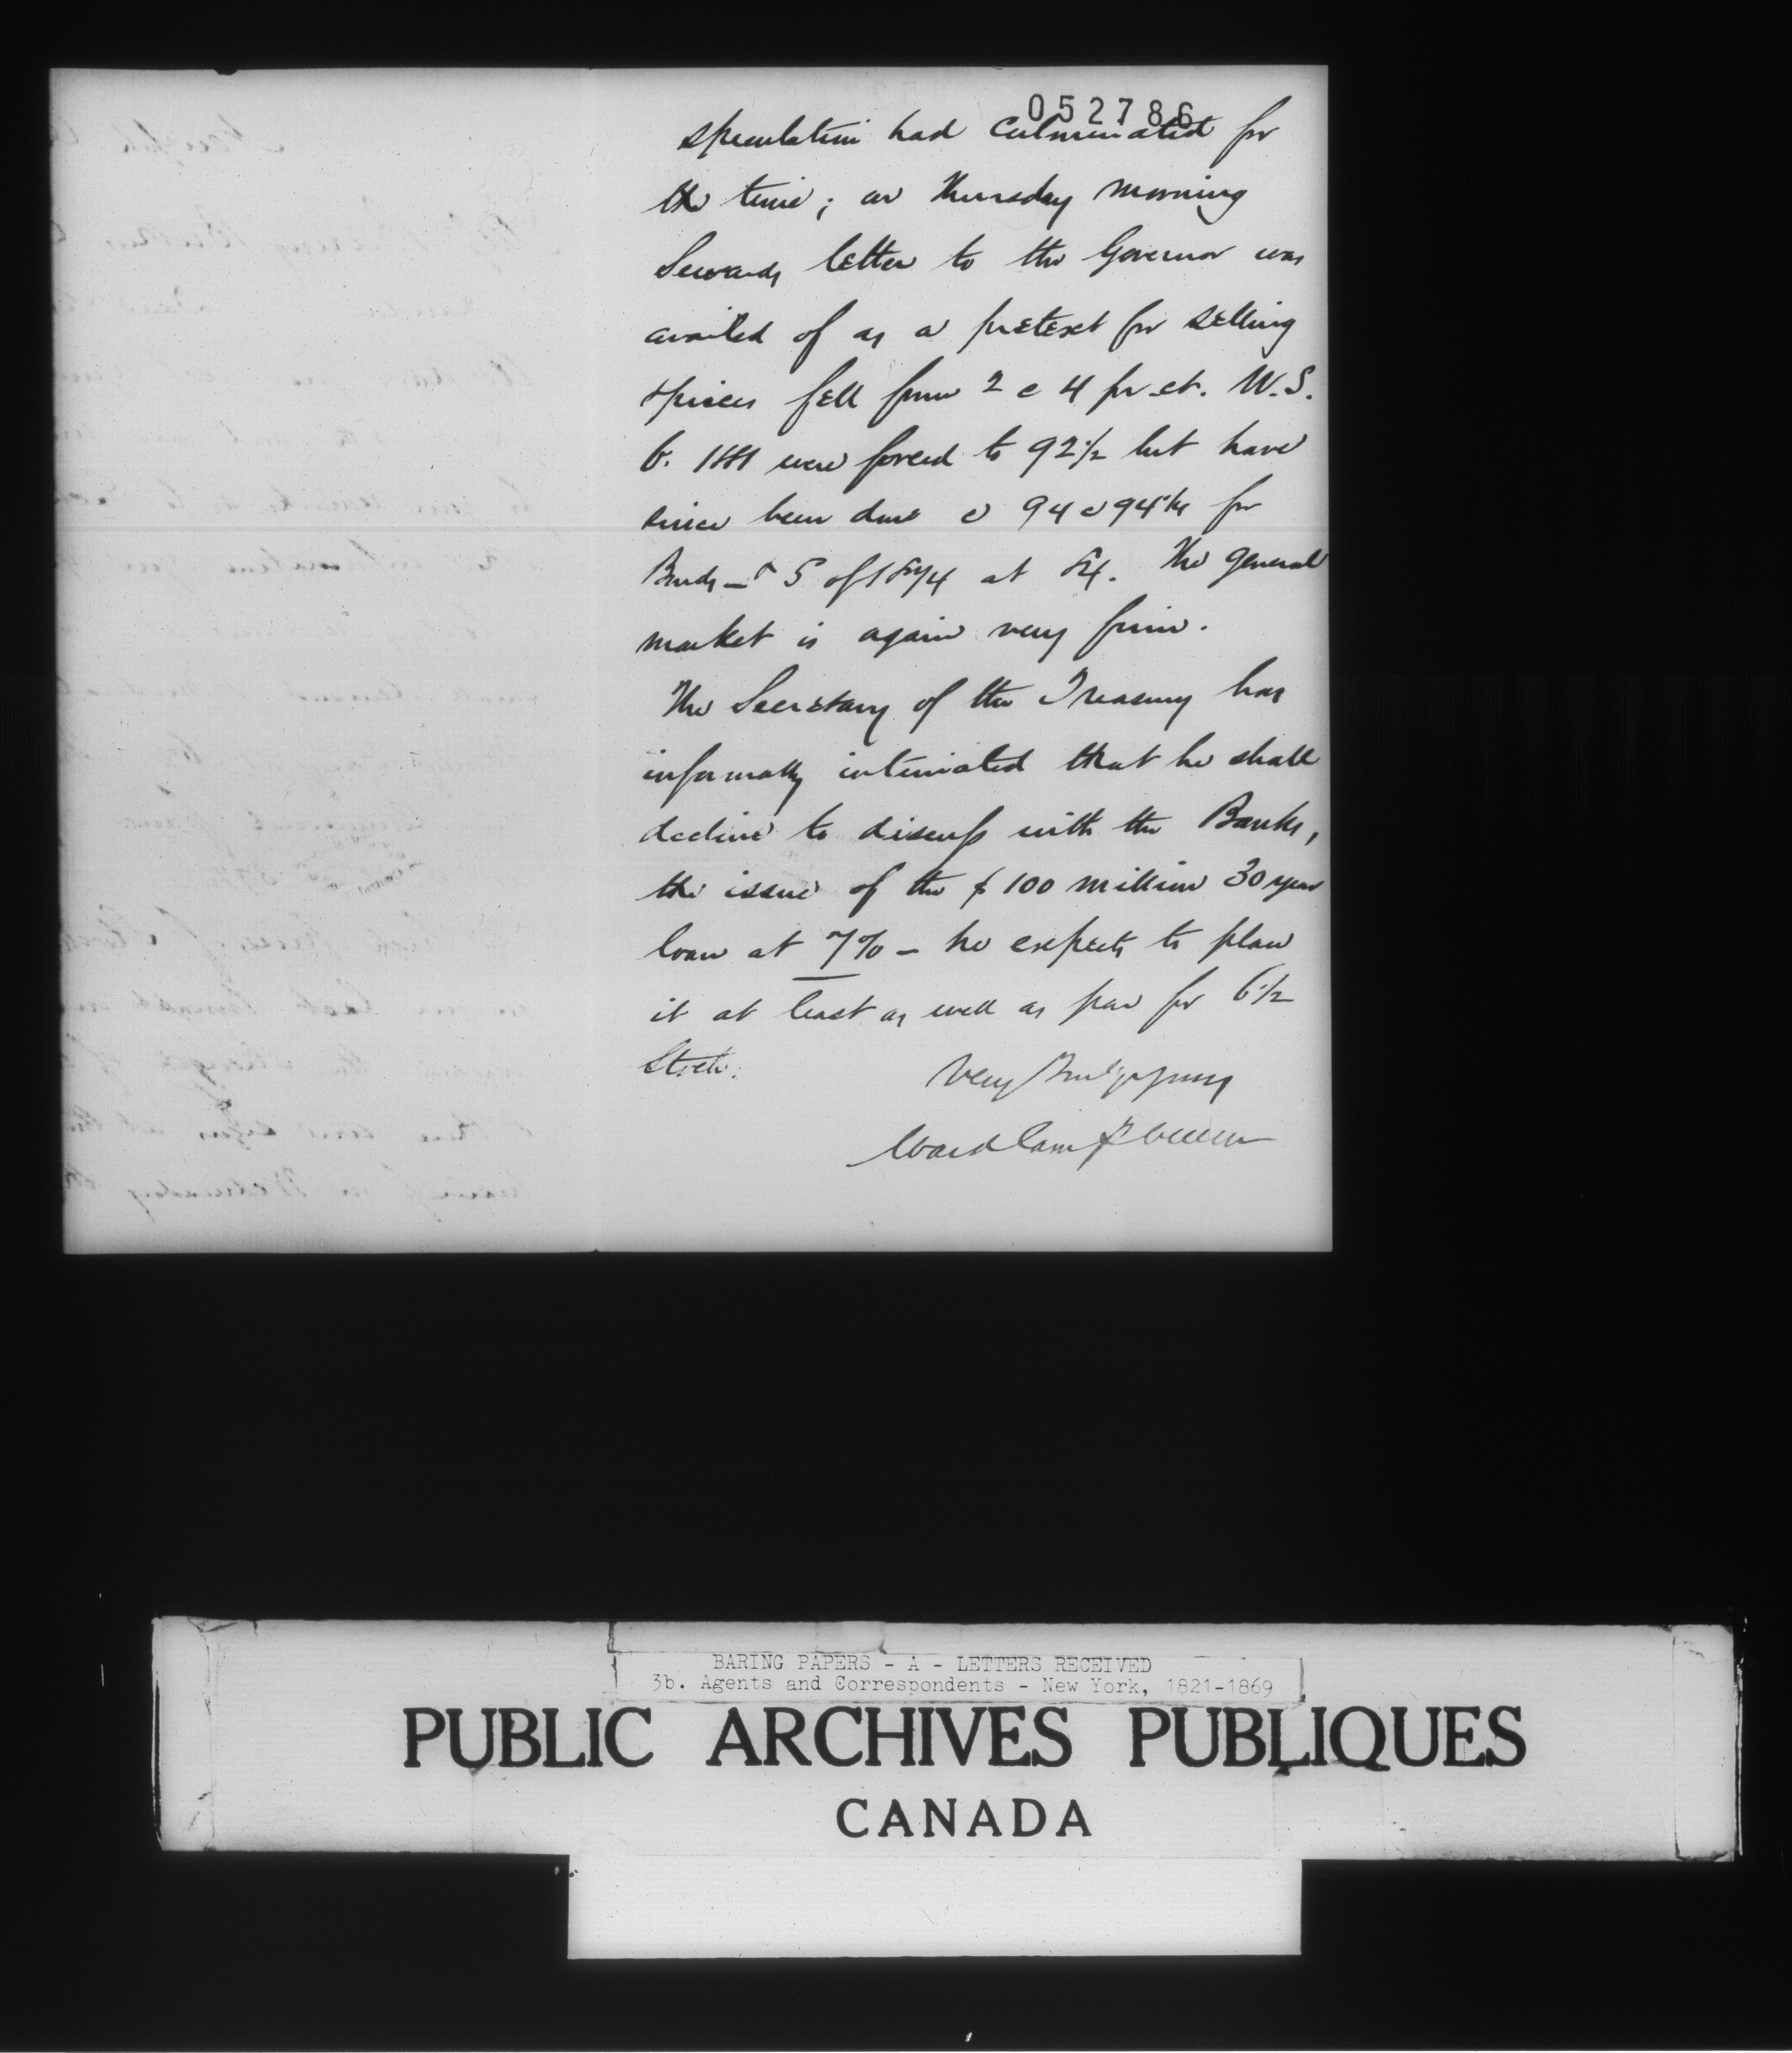 052786
speculation had culminated for
the time; on Thursday morning
Sewards letter to the Governor was
availed of as a pretext for selling
& prices fell from 2 @ 4 pr ct. U.S.
6. 1881 were forced to 92½ but have
since been done @ 94 @ 94¼ for
Bonds _ & 5 of 1874 at 84. The general
market is again very firm.
The Secretary of the Treasury has
informally intimated that he shall
decline to discuss with the Banks,
the issue of the $100 million 30 year
loan at 7% _ he expects to place
it at least as well as par for 6½
Stock.
Very
Ward Campbell
BARING PAPERS - A - LETTERS RECEIVED
3b. Agents and Correspondents - New York, 1821-1869
PUBLIC ARCHIVES PUBLIQUES
CANADA